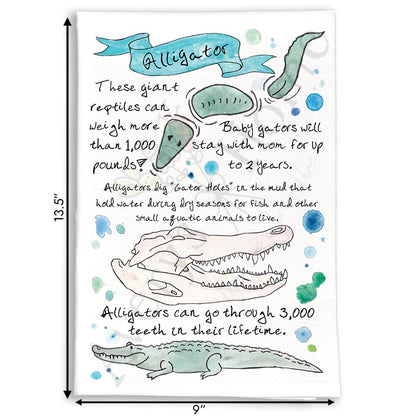 Alligator
These giant
reptiles can
weigh more
than 1,000
pounds!
Baby gators will
stay with mom for up
to 2 years.
Alligators dig "Gator Holes" in the mud that
hold water during dry seasons for fish and other
small aquatic animals to live.
Alligators can go through 3,000
teeth in their lifetime.
13.5"
9"